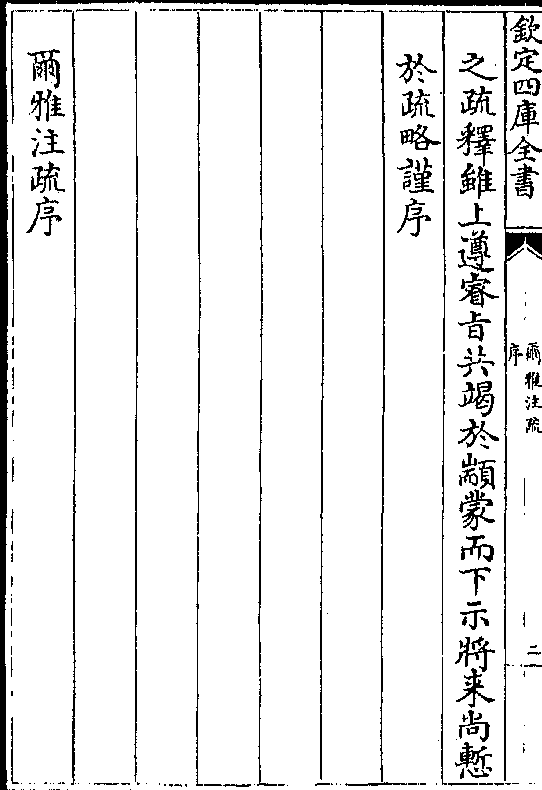 欽定四庫全書
爾雅注疏
序
二
之疏釋雖上遵睿旨共竭於顓蒙而下示將来尚慙
於疏略謹序
爾雅注疏序